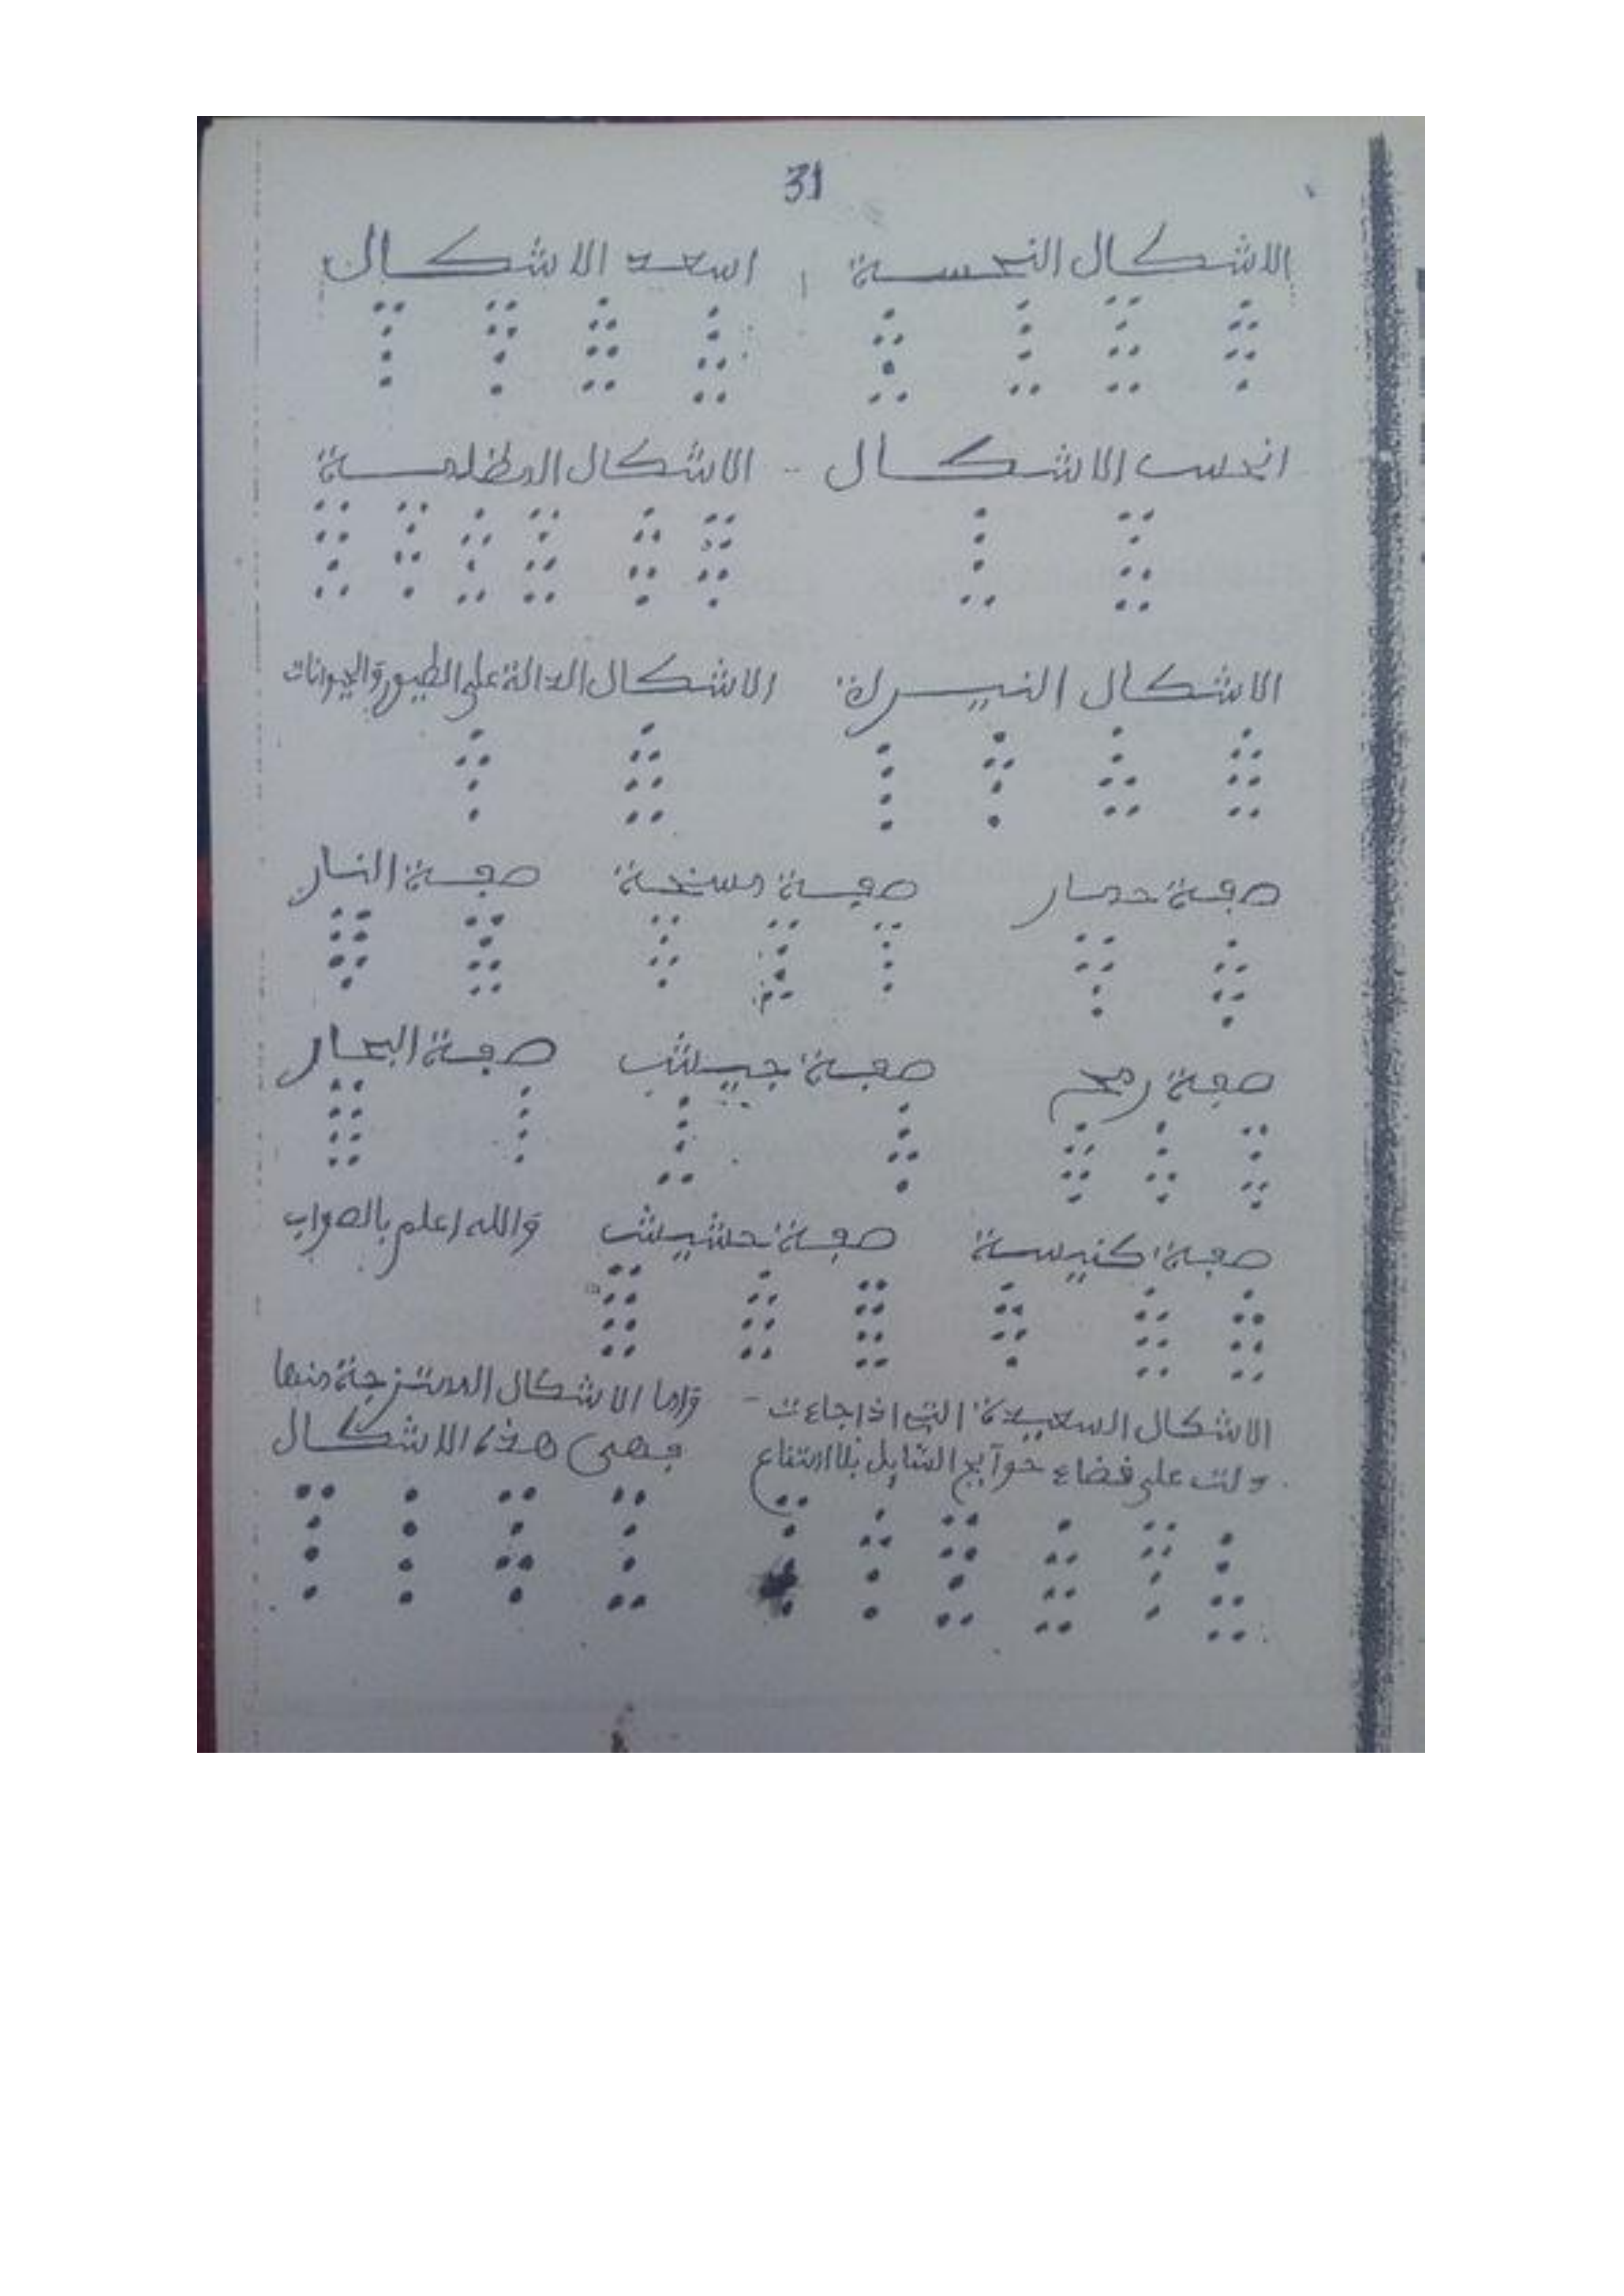 31
الاشكال النحسة
اسعد الاشكال
انحس الاشكال
الاشكال المظلمسة
الاشكال النيرة
الاشكال الدالة على الطيور والحيوانات
صفة حمار
صفة مسخة
صفة النار
صفة رمح
صفة جيش
صفة البحار
صفة كنيسة
صفة حشيش
والله اعلم بالصواب
الاشكال السعيدة التي اذا جاءت
دلت على قضاء حوآيج السايل بلا امتناع
واما الاشكال الممتزجة منها
فهي هذه الاشكال